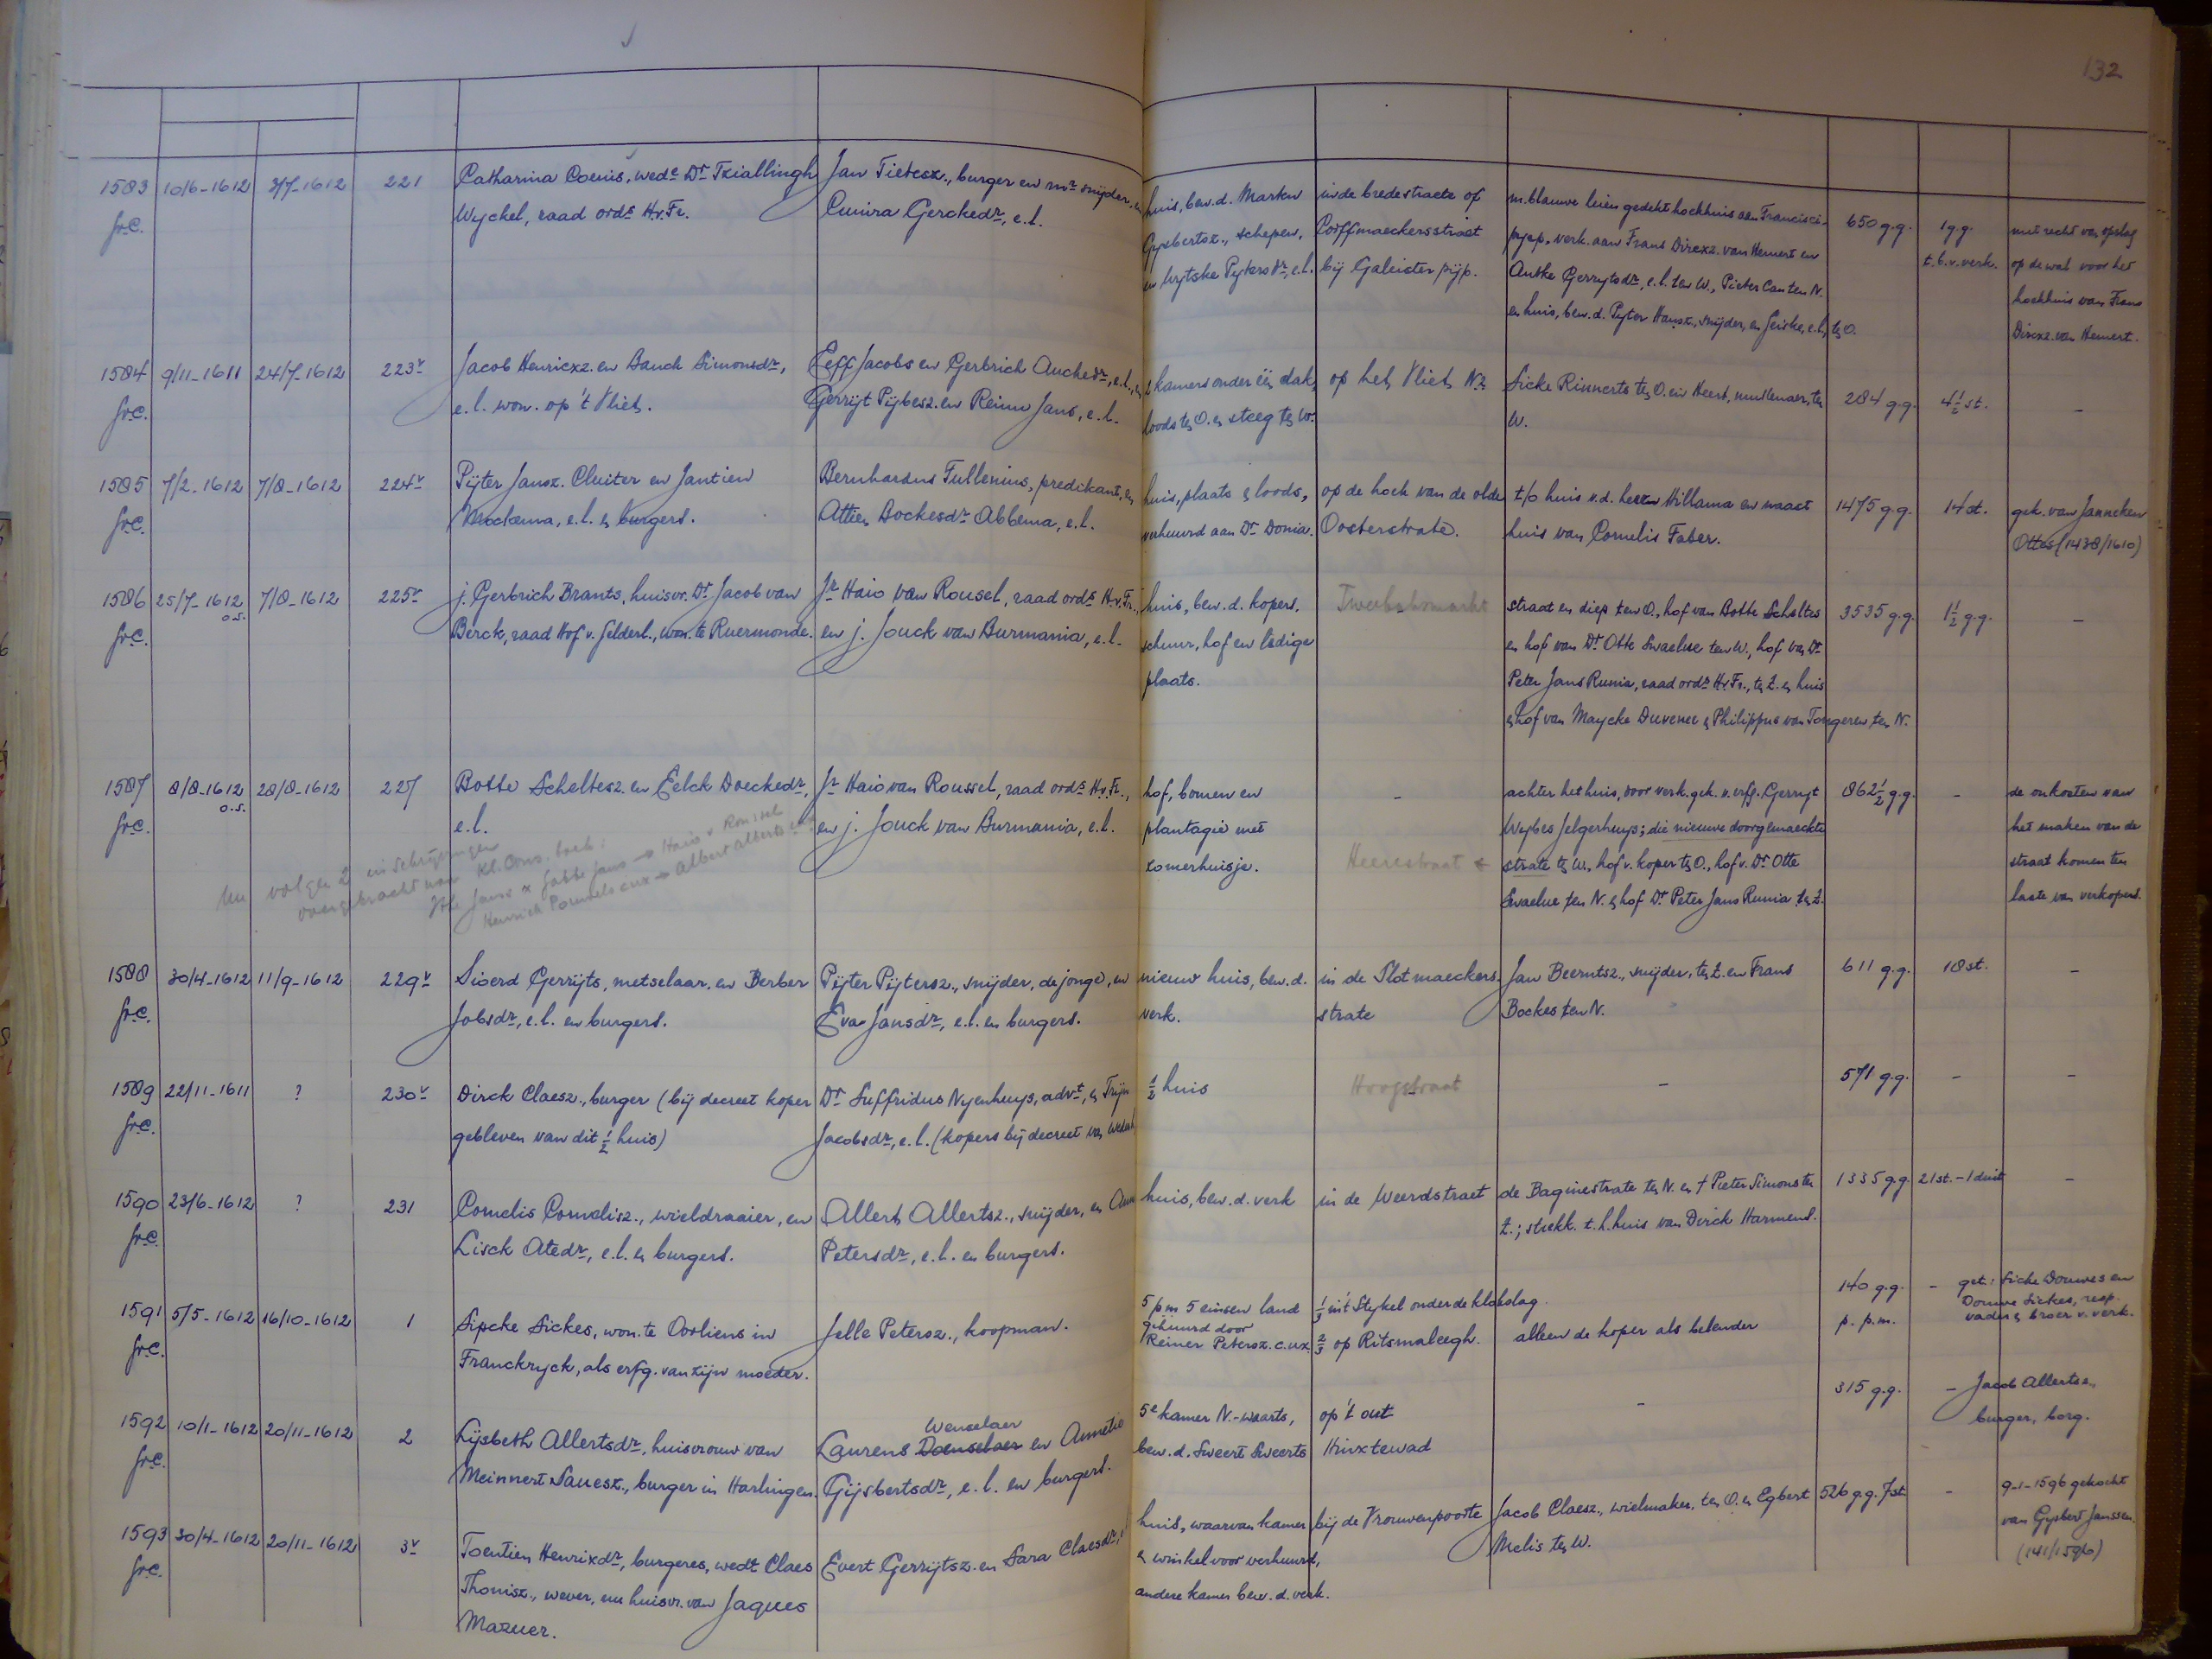 132
1583 10/6-1612 3/7-1612 221 Catharina Coenis, wede Dr Tziallingh Jan Tietesz., burger en mr snijder, en huis, bew. d. Marten in de bredestraete of m. blauwe leien gedekt hoekhuis aen Francisci- 650 g.g. 1 g.g. met recht van opslag
gr.C. Wyckel, raad ords H.v.Fr. Cunira Gerckedr, e.l. Gysbertsz., schepen, Corffmaeckersstraet pijp, verk. aan Frans Dircxz. van Hemert en t.b.v. verk. op de wal voor het
en Wytske Pytersdr, e.l. bij Galeister pijp. Antke Gerrytsdr, e.l. ten W., Pieter Can ten N. hoekhuis van Frans
en huis, bew. d. Pyter Hansz., snijder, en Jeiske, e.l., ten O. Dircxz. van Hemert.
1584 9/11-1611 24/7-1612 223v Jacob Henricxz. en Bauck Simonsdr, Eeff Jacobs en Gerbrich Auckedr, e.l., en 2 kamers onder één dak, op het Vliet N.z. Sicke Rinnerts ten O. en Heert, muntenaer, ten 284 g.g. 4½ st. -
gr.C. e.l. won. op 't Vliet. Gerrijt Pijbesz. en Reinu Jans, e.l. loods ten O. en steeg ten W. W.
1585 7/2-1612 7/8-1612 224v Pijter Jansz. Cluiter en Jantien Bernhardus Fullenius, predikant, en huis, plaats & loods, op de hoek van de olde t/o huis v.d. heren Hillama en naast 1475 g.g. 14 st. gek. van Janneken
gr.C. Mockema, e.l. & burgers. Attien Bockesdr Abbema, e.l. verhuurd aan Dr Donia. Oosterstrate. huis van Cornelis Faber. Ottes (1438/1610)
1586 25/7-1612 o.s. 7/8-1612 225v j. Gerbrich Brants, huisvr. Dr Jacob van Jr Haio van Rousel, raad ords H.v.Fr., huis, bew. d. kopers, Tweebaksmarkt straat en diep ten O., hof van Botte Scheltes 3535 g.g. 1½ g.g. -
gr.C. Berck, raad Hof v. Gelderl., won. te Ruermonde. en j. Jouck van Burmania, e.l. schuur, hof en ledige en hof van Dr Otte Swaelue ten W., hof van Dr
plaats. Peter Jans Runia, raad ords H.v.Fr., ten Z. en huis
& hof van Maycke Duvenee & Philippus van Tongeren ten N.
1587 8/8-1612 o.s. 28/8-1612 227 Botte Scheltesz. en Eelck Doeckedr, Jr Haio van Roussel, raad ords H.v.Fr., hof, bomen en - achter het huis, voor verk. gek. v. erfg. Gerryt 862½ g.g. - de onkosten van
gr.C. e.l. en j. Jouck van Burmania, e.l. plantagie met Wybes Jelgerhuys; die nieuwe doorgemaeckte het maken van de
zomerhuisje. Heerestraat strate ten W., hof v. koper ten O., hof v. Dr Otte straat komen ten
Swaelue ten N. & hof Dr Peter Jans Runia ten Z. laste van verkopers.
nu volgen 2 inschrijvingen
overgebracht naar Kl. Cons. boek:
Jfke Jans x Jabbe Jans → Haio v Rousel
Henrick Poundels cux → Albert Alberts cux
1588 30/4-1612 11/9-1612 229v Sioerd Gerrijts, metselaar, en Berber Pijter Pijtersz., snijder, de jonge, en nieuw huis, bew. d. in de Slotmaeckers Jan Beerntsz., snijder, ten Z. en Frans 611 g.g. 18 st. -
gr.C. Jobsdr, e.l. en burgers. Eva Jansdr, e.l. en burgers. verk. strate Bockes ten N.
1589 22/11-1611 ? 230v Dirck Claesz., burger (bij decreet koper Dr Suffridus Nyenhuys, advt, & Trijn ½ huis Hoogstraat - 571 g.g. - -
gr.C. gebleven van dit ½ huis) Jacobsdr, e.l. (kopers bij decreet van
1590 23/6-1612 ? 231 Cornelis Cornelisz., wieldraaier, en Allert Allertsz., snijder, en huis, bew. d. verk in de Weerdstraet de Baginestrate ten N. en † Pieter Simons ten 1335 g.g. 21 st. - 1 duit -
gr.C. Lisck Atedr, e.l. & burgers. Petersdr, e.l. en burgers. Z.; strekk. t.h. huis van Dirck Harmens.
1591 5/5-1612 16/10-1612 1 Sipcke Sickes, won. te Oorliens in Jelle Petersz., koopman. 5 pm 5 einsen land ⅓ in 't Stykel onder de klokslag 140 g.g. - get: Sicke Douwes en
gr.C. Franckryck, als erfg. van zijn moeder. gehuurd door Reiner Petersz. c.ux. ⅔ op Ritsmaleegh. alleen de koper als belender p. p.m. Douwe Sickes, resp. vader & broer v. verk.
1592 10/1-1612 20/11-1612 2 Lijsbeth Allertsdr, huisvrouw van Laurens Doenselaer Wenselaer en Annetie 5e kamer N.-waarts, op 't out - 315 g.g. - Jacob Allertsz,
gr.C. Meinnert Sauesz., burger in Harlingen. Gijsbertsdr, e.l. en burgers. bew. d. Sweert Sweerts Hinxtewad burger, borg.
1593 30/4-1612 20/11-1612 3v Toentien Henrixdr, burgeres, wede Claes Evert Gerrijtsz. en Sara Claesdr, huis, waarvan kamer bij de Vrouwenpoorte Jacob Claesz., wielmaker, ten O. & Egbert 526 g.g. 7 st - 9-1-1596 gekocht
gr.C. Thonisz., wever, nu huisvr. van Jaques & winkel voor verhuurd, Melis ten W. van Gysbert Janssen
Mazuer. andere kamer bew. d. verk. (141/1596)